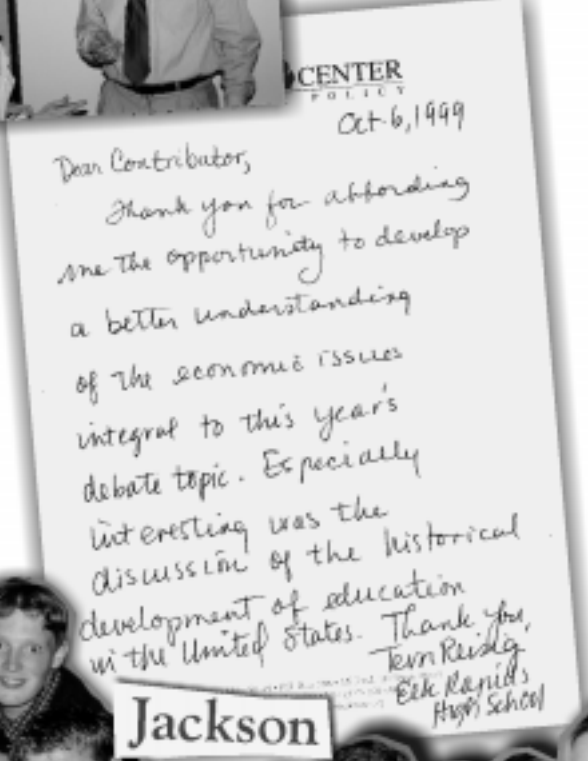 CENTER
POLICY
Oct. 6, 1999
Dear Contributor,
Thank you for affording
me the opportunity to develop
a better understanding
of the economic issues
integral to this year's
debate topic. Especially
interesting was the
discussion of the historical
development of education
in the United States. Thank you,
Elk Rapids
High School
Jackson